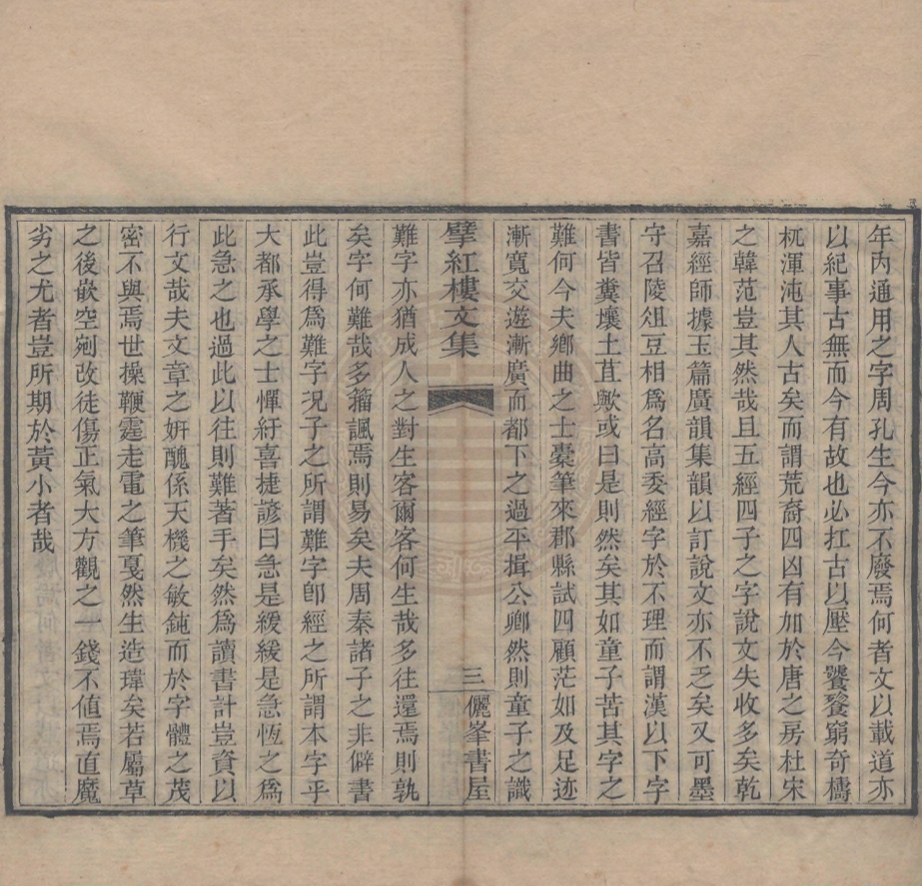 年內通用之字周孔生今亦不廢焉何者文以載道亦
以紀事古無而今有故也必扛古以壓今饕餮窮奇檮
杌渾沌其人古矣而謂荒裔四凶有加於唐之房杜宋
之韓范豈其然哉且五經四子之字說文失收多矣乾
嘉經師據玉篇廣韻集韻以訂說文亦不乏矣又可墨
守召陵俎豆相為名高委經字於不理而謂漢以下字
書皆糞壤土苴歟或曰是則然矣其如童子苦其字之
難何今夫鄉曲之士橐筆來郡縣試四顧茫如及足迹
漸寬交遊漸廣而都下之過平揖公卿然則童子之識
擘紅樓文集
三
儷峯書屋
難字亦猶成人之對生客爾客何生哉多往還焉則孰
矣字何難哉多籀諷焉則易矣夫周秦諸子之非僻書
此豈得為難字況子之所謂難字卽經之所謂本字乎
大都承學之士憚紆喜捷諺曰急是緩緩是急恆之為
此急之也過此以往則難著手矣然為讀書計豈資以
行文哉夫文章之妍醜係天機之敏鈍而於字體之茂
密不與焉世操鞭霆走電之筆戛然生造瑋矣若屬草
之後嵌空剜改徒傷正氣大方觀之一錢不值焉直魔
劣之尤者豈所期於黃小者哉